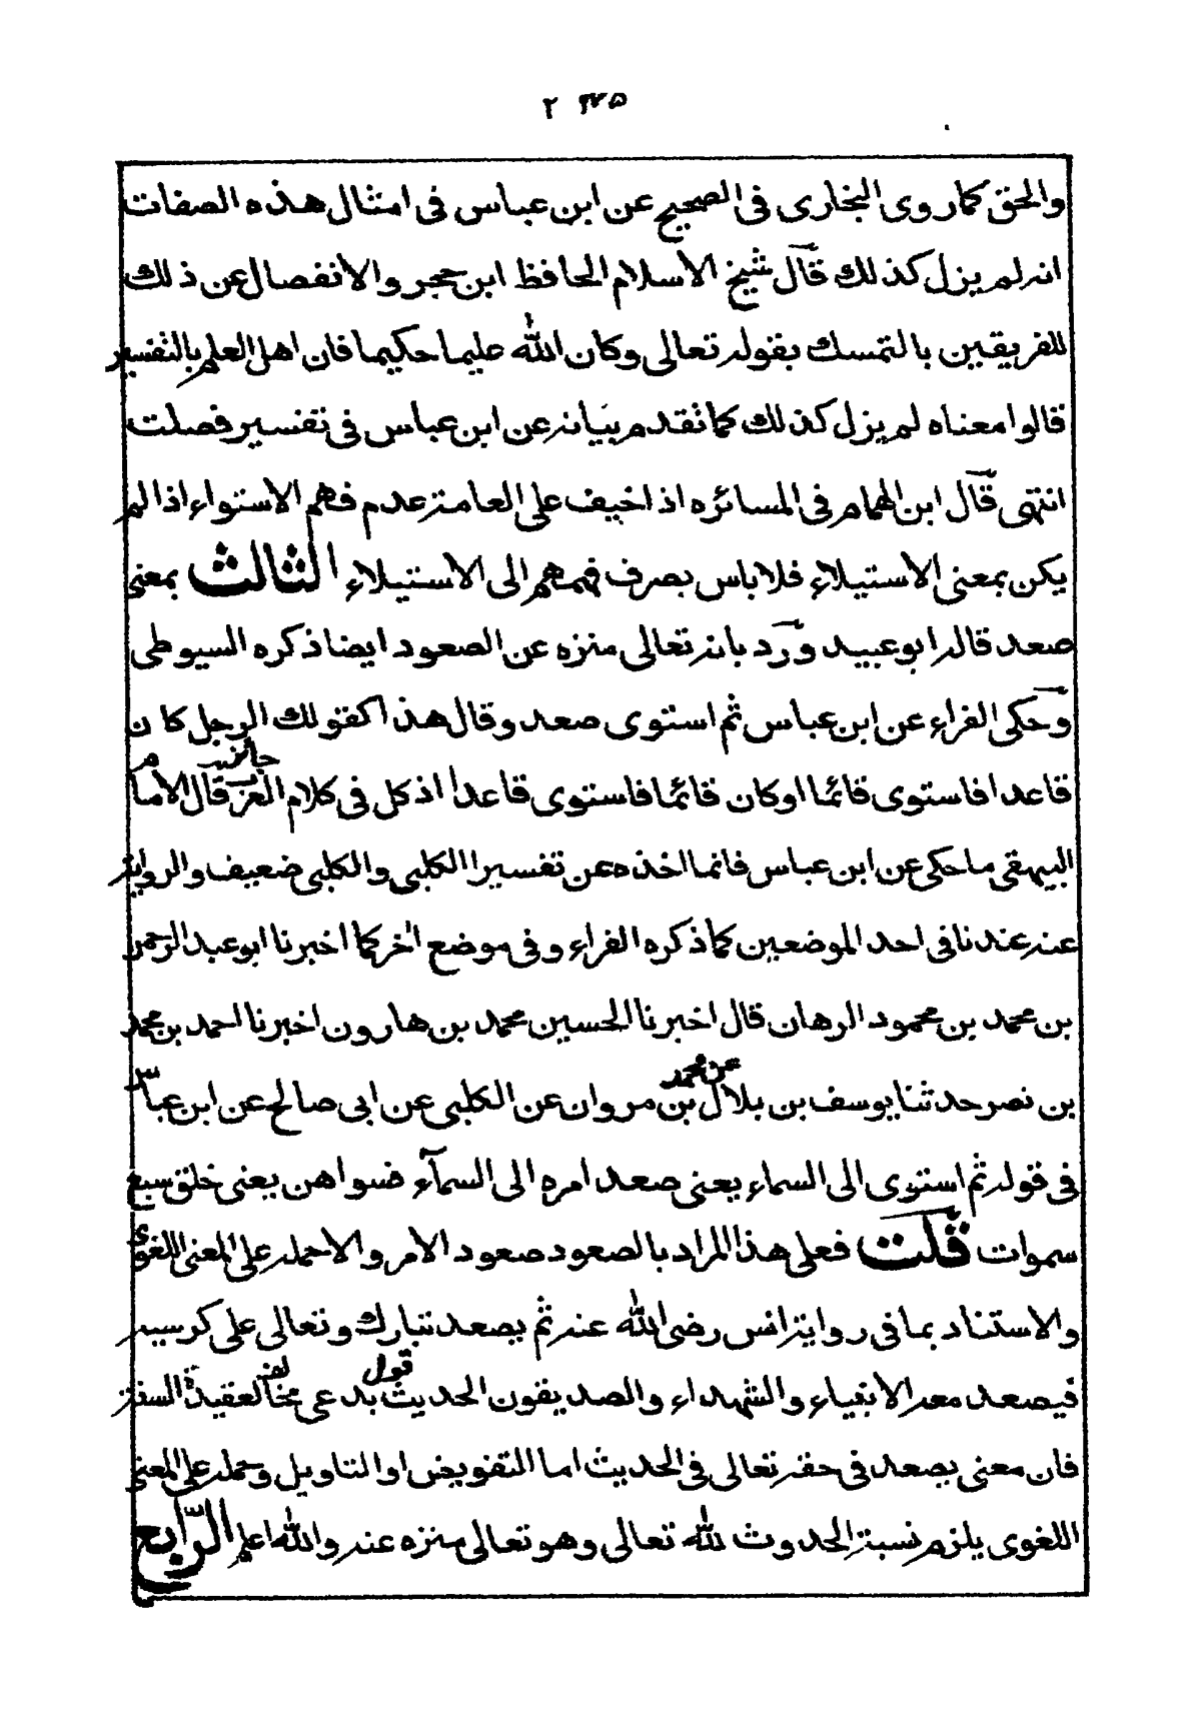 ٢ ٢٢٥
والحق كما روى البخارى فى الصحيح عن ابن عباس فى امثال هذه الصفات
انه لم يزل كذلك قال شيخ الاسلام الحافظ ابن حجر والانفصال عن ذلك
للفريقين بالتمسك بقوله تعالى وكان الله عليما حكيما فان اهل العلم بالتفسير
قالوا معناه لم يزل كذلك كما تقدم بيانه عن ابن عباس فى تفسير فصلت
انتهى قال ابن الهمام فى المسائره اذا خيف على العامة عدم فهم الاستواء اذا لم
يكن بمعنى الاستيلاء فلا باس بصرف فهمهم الى الاستيلاء الثالث بمعنى
صعد قاله ابو عبيد ورد بانه تعالى منزه عن الصعود ايضا ذكره السيوطى
وحكى الفراء عن ابن عباس ثم استوى صعد وقال هذا كقولك الرجل كان
قاعدا فاستوى قائما اوكان قائما فاستوى قاعدا اذ كل فى كلام العرب جائز قال الامام
البيهقى ما حكى عن ابن عباس فانما اخذه عن تفسير الكلبى والكلبى ضعيف والرواية
عنه عندنا فى احد الموضعين كما ذكره الفراء وفى موضع اخر كما اخبرنا ابو عبد الرحمن
بن محمد بن محمود الرهان قال اخبرنا الحسين محمد بن هارون اخبرنا احمد بن محمد
بن نصر حدثنا يوسف بن بلال عن محمد بن مروان عن الكلبى عن ابى صالح عن ابن عباس
فى قوله ثم استوى الى السماء يعنى صعد امره الى السمآء فسواهن يعنى خلق سبع
سموات قلت فعلى هذا المراد بالصعود صعود الامر والاحمله على المعنى اللغوى
والاستناد بما فى رواية انس رضى الله عنه ثم يصعد تبارك وتعالى على كرسيه
فيصعد معه الانبياء والشهداء والصديقون الحديث قول بدعى مخالف لعقيدة السنة
فان معنى يصعد فى حقه تعالى فى الحديث اما التفويض او التاويل وحمله على المعنى
اللغوى يلزم نسبة الحدوث لله تعالى وهو تعالى منزه عنه والله اعلم الرّابع